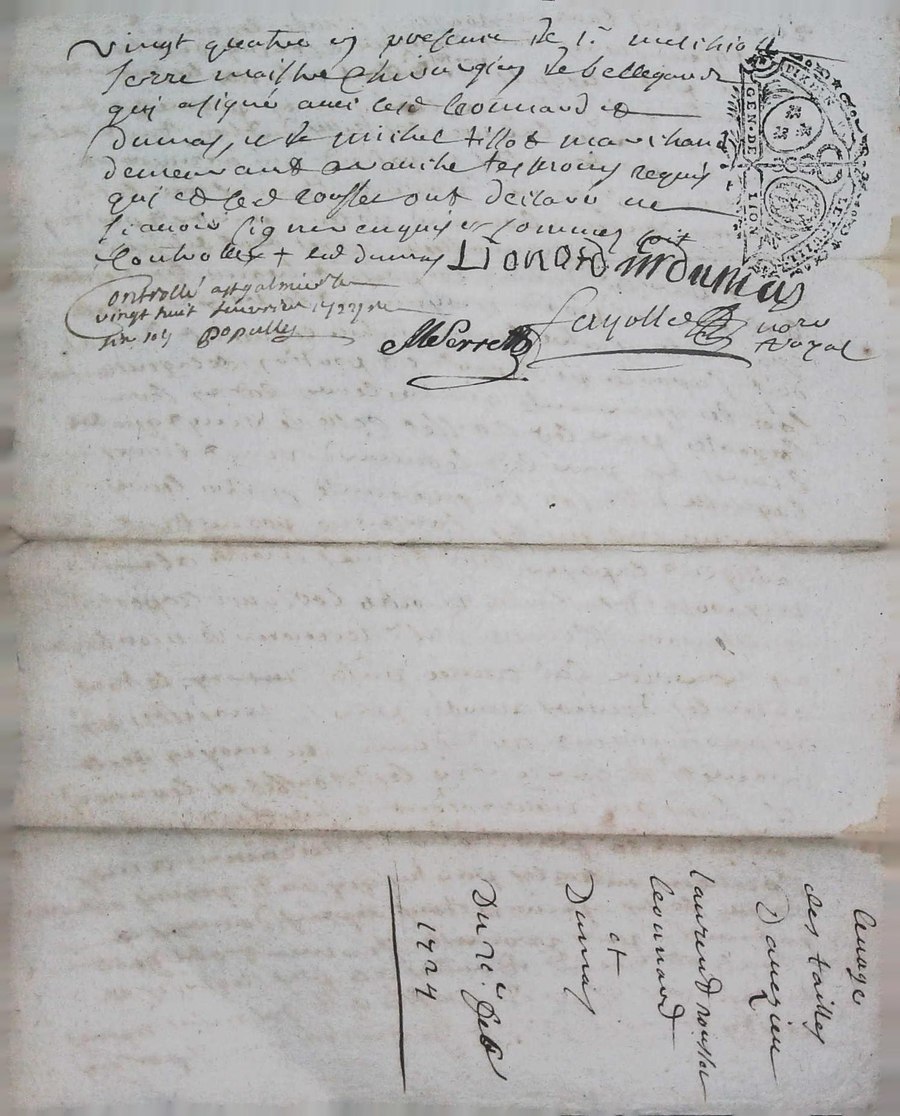 vingt quatre en presence de Sr. melchior
serre maistre Chirurgien de bellegarde
qui a signé avec lesd leonnard et
dumas, et de michel fillot marchand
demeurant avauche tesmoins requis
qui et led rousset ont declaré ne
scavoir signer enquis et sommes soit
Controllé + led dumas LIONARD m dumas
Controllé a st galmier le
vingt huit feuvrier 1724
six sols popullus
MSerre
Fayolle nore
Royal
GEN · DE LION
levage
des tailles
Davezieu
laurend rousset
leonnard
et
Dumas
Du 20e feb
1724